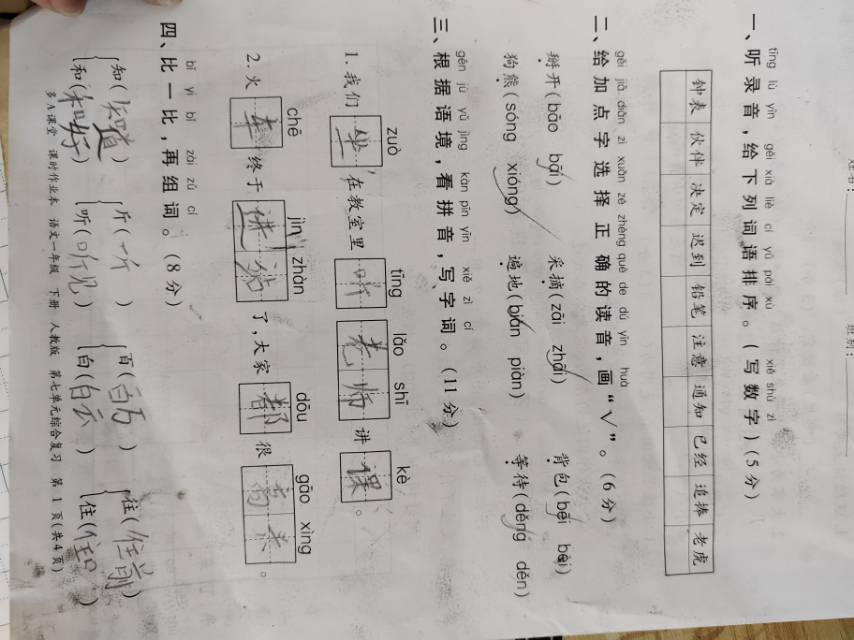 姓名：
班别：
tīng lù yīn gěi xià liè cí yǔ pái xù xiě shù zì
一、听录音，给下列词语排序。（写数字）（5分）
钟表 伙伴 决定 迟到 铅笔 注意 通知 已经 追捧 老虎
gěi jiā diǎn zì xuǎn zé zhèng què de dú yīn huà
二、给加点字选择正确的读音，画“√”。（6分）
掰开（bāo bāi） 采摘（zāi zhāi） 背包（bēi bèi）
狗熊（sóng xióng） 遍地（biàn piàn） 等待（děng děn）
gēn jù yǔ jìng kàn pīn yīn xiě zì cí
三、根据语境，看拼音，写字词。（11分）
zuò tīng lǎo shī kè
1. 我们坐在教室里听老师讲课。
chē jìn zhàn dōu gāo xìng
2. 火车终于进站了，大家都很高兴。
bǐ yì bǐ zài zǔ cí
四、比一比，再组词。（8分）
知（知道） 斤（一斤） 百（百万） 往（往前）
和（和好） 听（听见） 白（白云） 住（住口）
多A课堂 课时作业本 语文一年级 下册 人教版 第七单元综合复习 第1页（共4页）